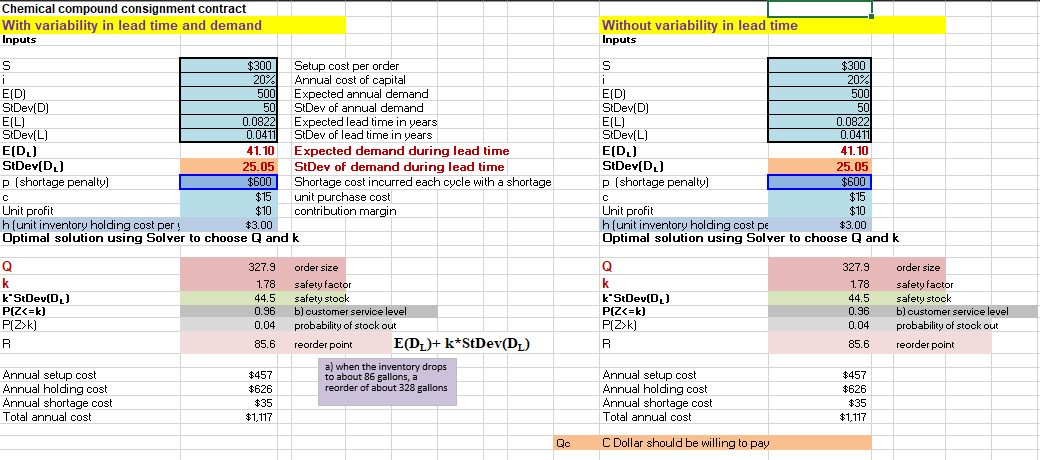 Chemical compound consignment contract
With variability in lead time and demand Without variability in lead time
Inputs Inputs
S $300 Setup cost per order S $300
i 20% Annual cost of capital i 20%
E(D) 500 Expected annual demand E(D) 500
StDev(D) 50 StDev of annual demand StDev(D) 50
E(L) 0.0822 Expected lead time in years E(L) 0.0822
StDev(L) 0.0411 StDev of lead time in years StDev(L) 0.0411
E(DL) 41.10 Expected demand during lead time E(DL) 41.10
StDev(DL) 25.05 StDev of demand during lead time StDev(DL) 25.05
p (shortage penalty) $600 Shortage cost incurred each cycle with a shortage p (shortage penalty) $600
c $15 unit purchase cost c $15
Unit profit $10 contribution margin Unit profit $10
h (unit inventory holding cost per y $3.00 h (unit inventory holding cost pe $3.00
Optimal solution using Solver to choose Q and k Optimal solution using Solver to choose Q and k
Q 327.9 order size Q 327.9 order size
k 1.78 safety factor k 1.78 safety factor
k*StDev(DL) 44.5 safety stock k*StDev(DL) 44.5 safety stock
P(Z<=k) 0.96 b) customer service level P(Z<=k) 0.96 b) customer service level
P(Z>k) 0.04 probability of stock out P(Z>k) 0.04 probability of stock out
R 85.6 reorder point E(DL)+ k*StDev(DL) R 85.6 reorder point
a) when the inventory drops
to about 86 gallons, a
reorder of about 328 gallons
Annual setup cost $457 Annual setup cost $457
Annual holding cost $626 Annual holding cost $626
Annual shortage cost $35 Annual shortage cost $35
Total annual cost $1,117 Total annual cost $1,117
Qc C Dollar should be willing to pay